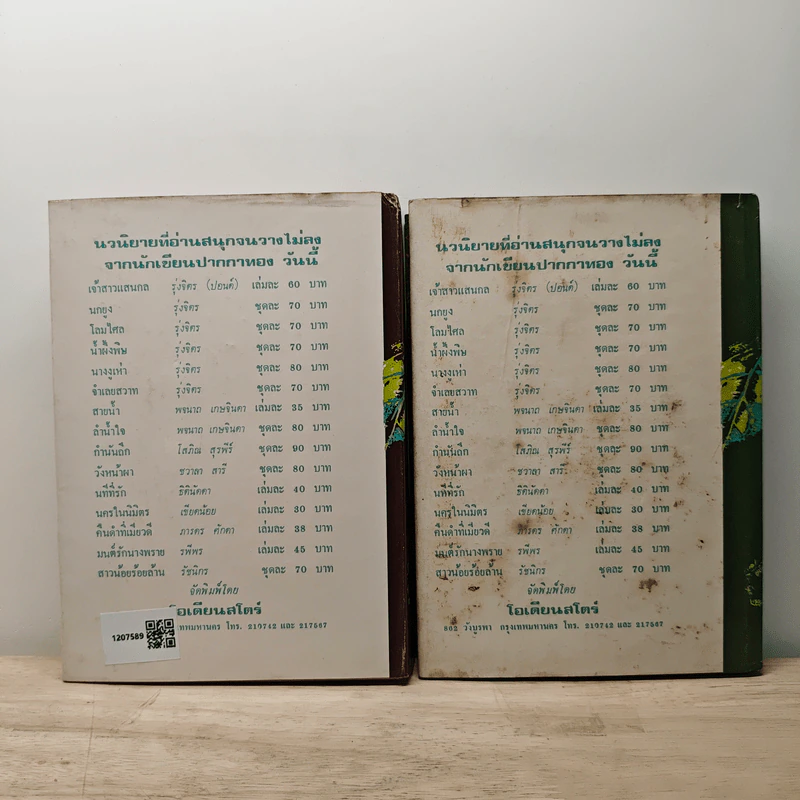 นวนิยายที่อ่านสนุกจนวางไม่ลง
จากนักเขียนปากกาทอง วันนี้
เจ้าสาวแสนกล รุ่งจิตร (ปอนด์) เล่มละ 60 บาท
นกยูง รุ่งจิตร ชุดละ 70 บาท
โลมไศล รุ่งจิตร ชุดละ 70 บาท
น้ำผึ้งพิษ รุ่งจิตร ชุดละ 70 บาท
นางงูเห่า รุ่งจิตร ชุดละ 80 บาท
จำเลยสวาท รุ่งจิตร ชุดละ 70 บาท
สายน้ำ พจนาถ เกษจินดา เล่มละ 35 บาท
ลำน้ำใจ พจนาถ เกษจินดา ชุดละ 80 บาท
กำนันถึก โสภิณ สุรพีร์ ชุดละ 90 บาท
วังหน้าผา ชวาลา สารี ชุดละ 80 บาท
นทีที่รัก ธิตินัดดา เล่มละ 40 บาท
นครในนิมิตร เขียดน้อย เล่มละ 30 บาท
คืนดำที่เมียวดี ภารดร ศักดา เล่มละ 38 บาท
มนต์รักนางพราย รพีพร เล่มละ 45 บาท
สาวน้อยร้อยล้าน รัชนิกร ชุดละ 70 บาท
จัดพิมพ์โดย
โอเดียนสโตร์
1207589
เทพมหานคร โทร. 219742 และ 217567
นวนิยายที่อ่านสนุกจนวางไม่ลง
จากนักเขียนปากกาทอง วันนี้
เจ้าสาวแสนกล รุ่งจิตร (ปอนด์) เล่มละ 60 บาท
นกยูง รุ่งจิตร ชุดละ 70 บาท
โลมไศล รุ่งจิตร ชุดละ 70 บาท
น้ำผึ้งพิษ รุ่งจิตร ชุดละ 70 บาท
นางงูเห่า รุ่งจิตร ชุดละ 80 บาท
จำเลยสวาท รุ่งจิตร ชุดละ 70 บาท
สายน้ำ พจนาถ เกษจินดา เล่มละ 35 บาท
ลำน้ำใจ พจนาถ เกษจินดา ชุดละ 80 บาท
กำนันถึก โสภิณ สุรพีร์ ชุดละ 90 บาท
วังหน้าผา ชวาลา สารี ชุดละ 80 บาท
นทีที่รัก ธิตินัดดา เล่มละ 40 บาท
นครในนิมิตร เขียดน้อย เล่มละ 30 บาท
คืนดำที่เมียวดี ภารดร ศักดา เล่มละ 38 บาท
มนต์รักนางพราย รพีพร เล่มละ 45 บาท
สาวน้อยร้อยล้าน รัชนิกร ชุดละ 70 บาท
จัดพิมพ์โดย
โอเดียนสโตร์
862 วังบูรพา กรุงเทพมหานคร โทร. 219742 และ 217567